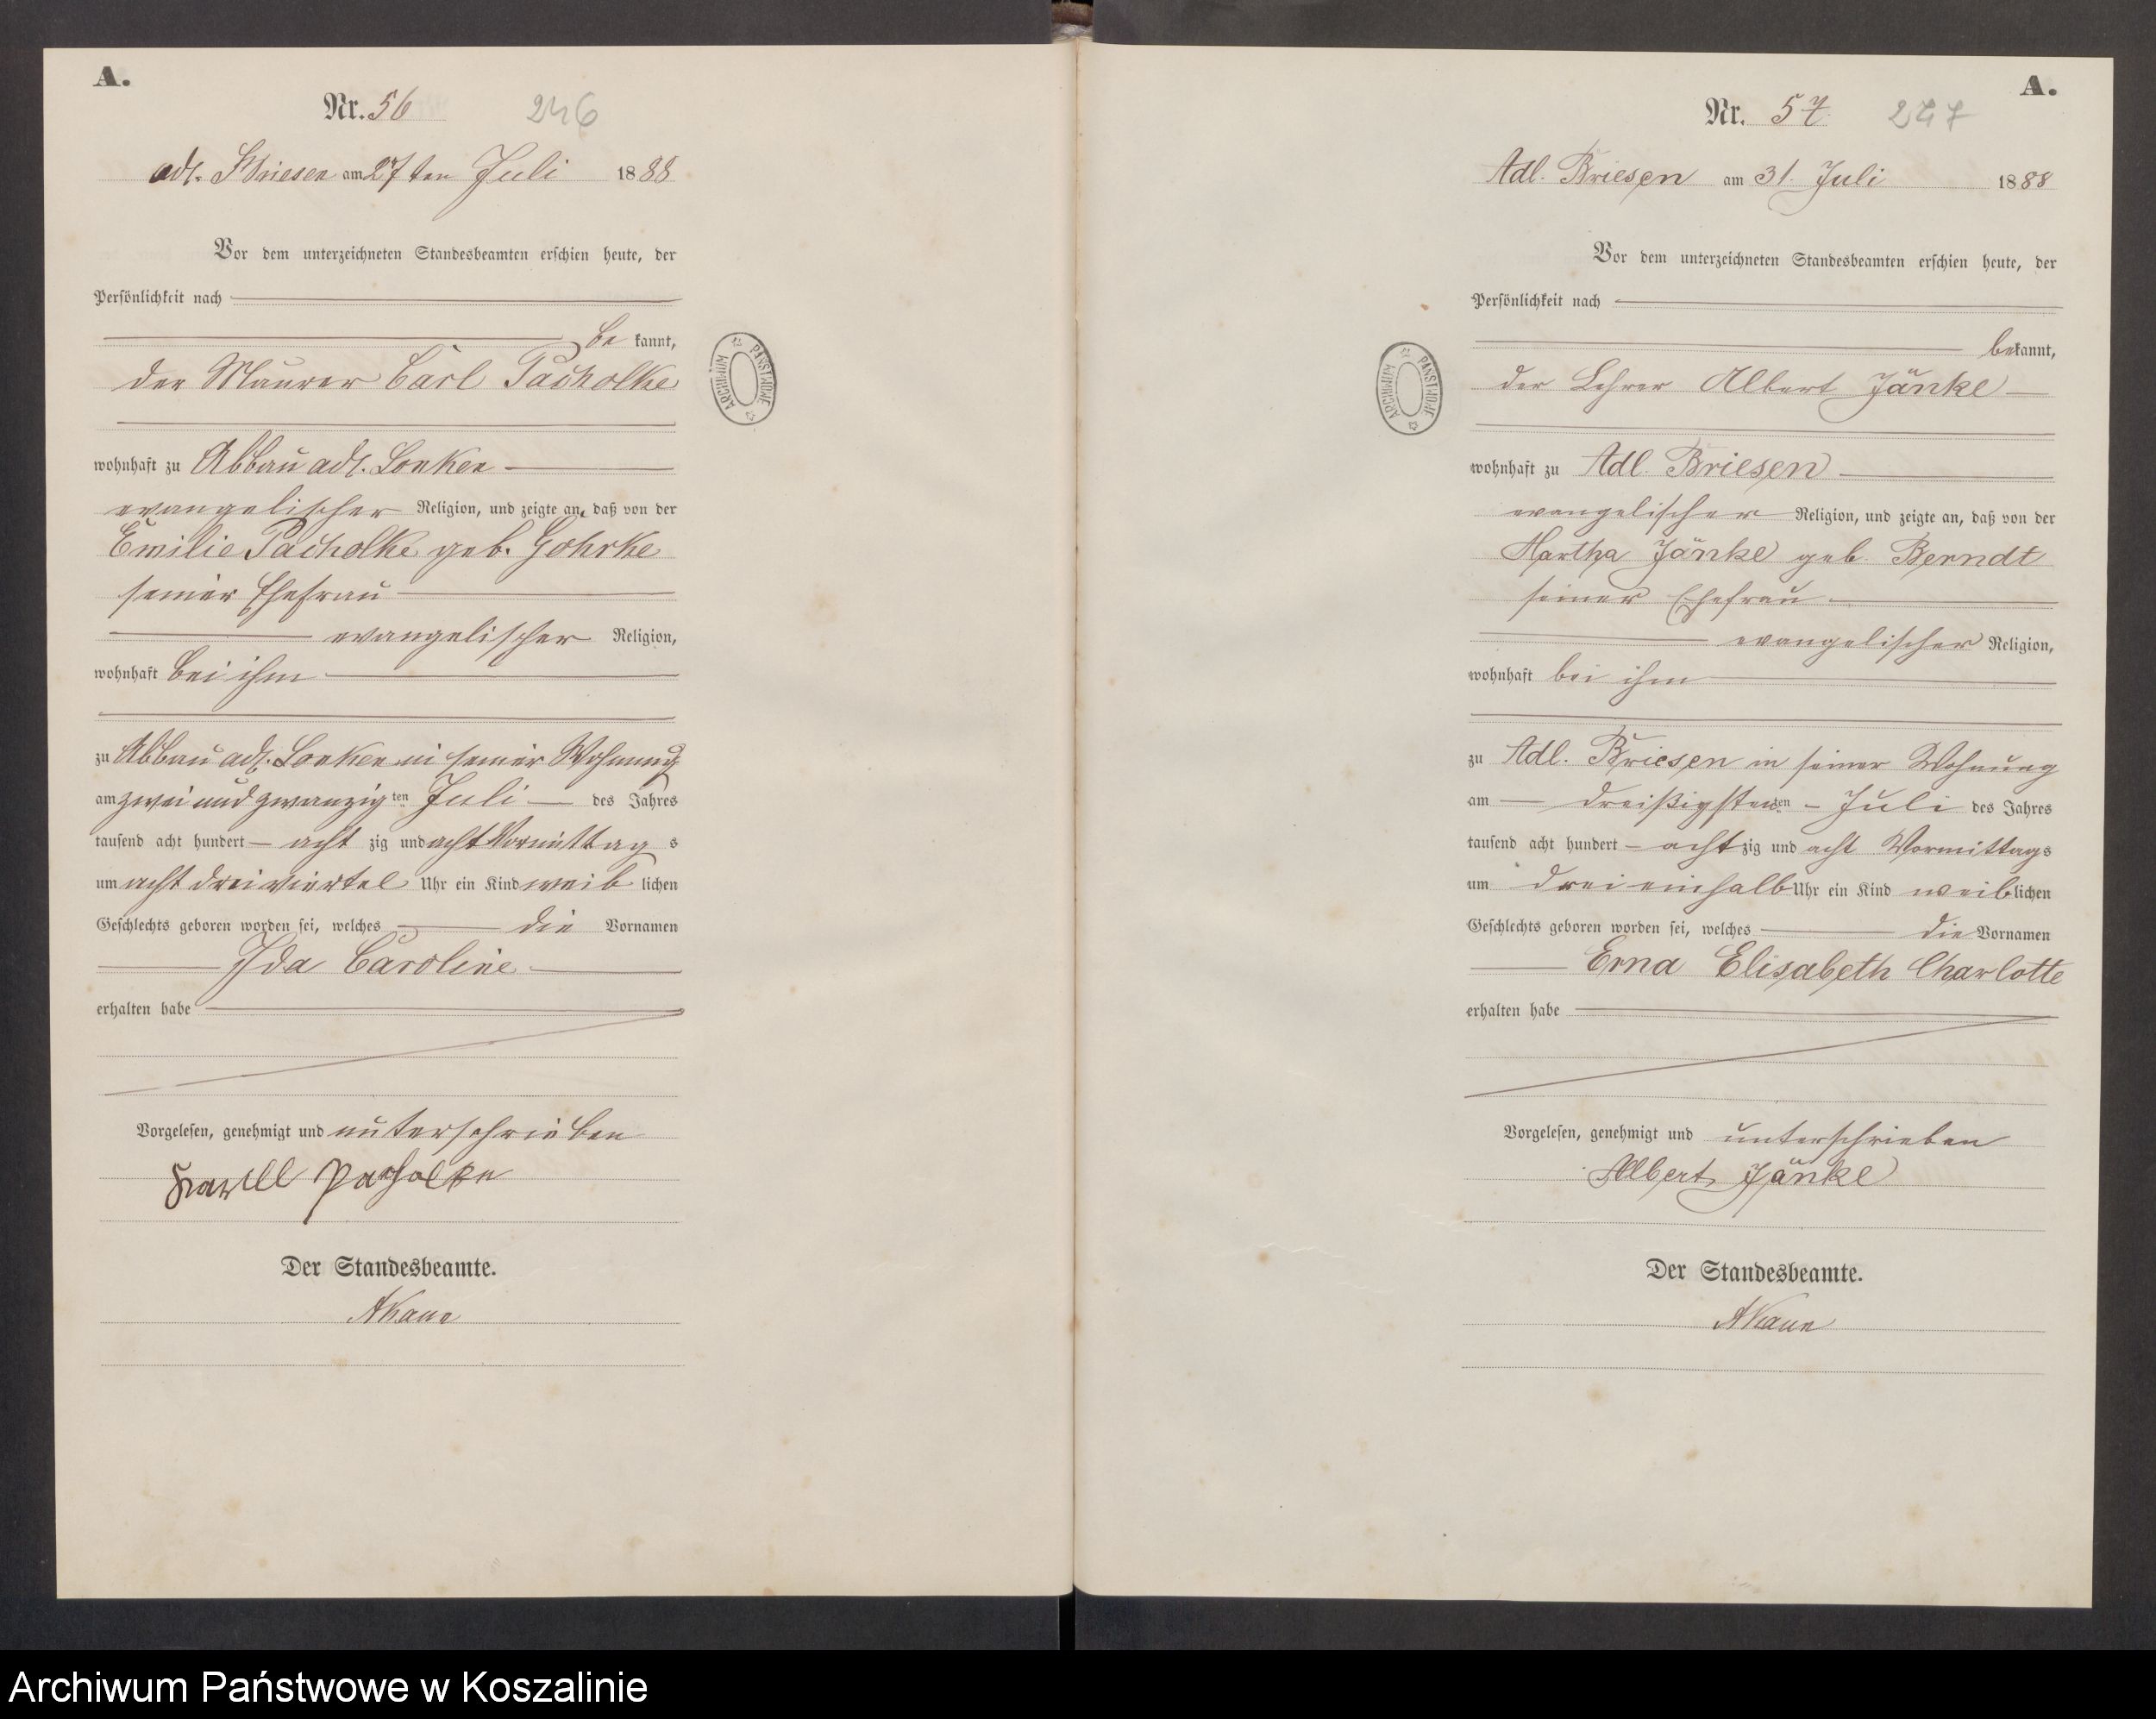 A.
Nr. 56 246
adl. Briesen am 27ten Juli 1888
Vor dem unterzeichneten Standesbeamten erschien heute, der
Persönlichkeit nach
be kannt,
der Maurer Carl Pacholke
wohnhaft zu Abbau adl. Lonken
evangelischer Religion, und zeigte an, daß von der
Emilie Pacholke geb. Gohrke
seiner Ehefrau
evangelischer Religion,
wohnhaft bei ihm
zu Abbau adl. Lonken in seiner Wohnung
am zwei und zwanzig ten Juli des Jahres
tausend acht hundert acht zig und acht Vormittag s
um acht dreiviertel Uhr ein Kind weib lichen
Geschlechts geboren worden sei, welches die Vornamen
Ida Caroline
erhalten habe
Vorgelesen, genehmigt und unterschrieben
Karll Pacholke
Der Standesbeamte.
ARCHIWUM PAŃSTWOWE
A.
Nr. 57 247
Adl. Briesen am 31. Juli 1888
Vor dem unterzeichneten Standesbeamten erschien heute, der
Persönlichkeit nach
bekannt,
der Lehrer Albert Jänke
wohnhaft zu Adl. Briesen
evangelischer Religion, und zeigte an, daß von der
Martha Jänke geb. Berndt
seiner Ehefrau
evangelischer Religion,
wohnhaft bei ihm
zu Adl. Briesen in seiner Wohnung
am dreißigsten ten Juli des Jahres
tausend acht hundert acht zig und acht Vormittags
um drei einhalb Uhr ein Kind weiblichen
Geschlechts geboren worden sei, welches die Vornamen
Erna Elisabeth Charlotte
erhalten habe
Vorgelesen, genehmigt und unterschrieben
Albert Jänke
Der Standesbeamte.
ARCHIWUM PAŃSTWOWE
Archiwum Państwowe w Koszalinie